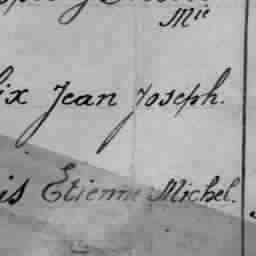 Mie
ix Jean Joseph.
is Etienne Michel.